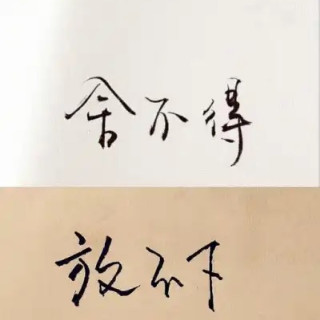 舍不得
放不下